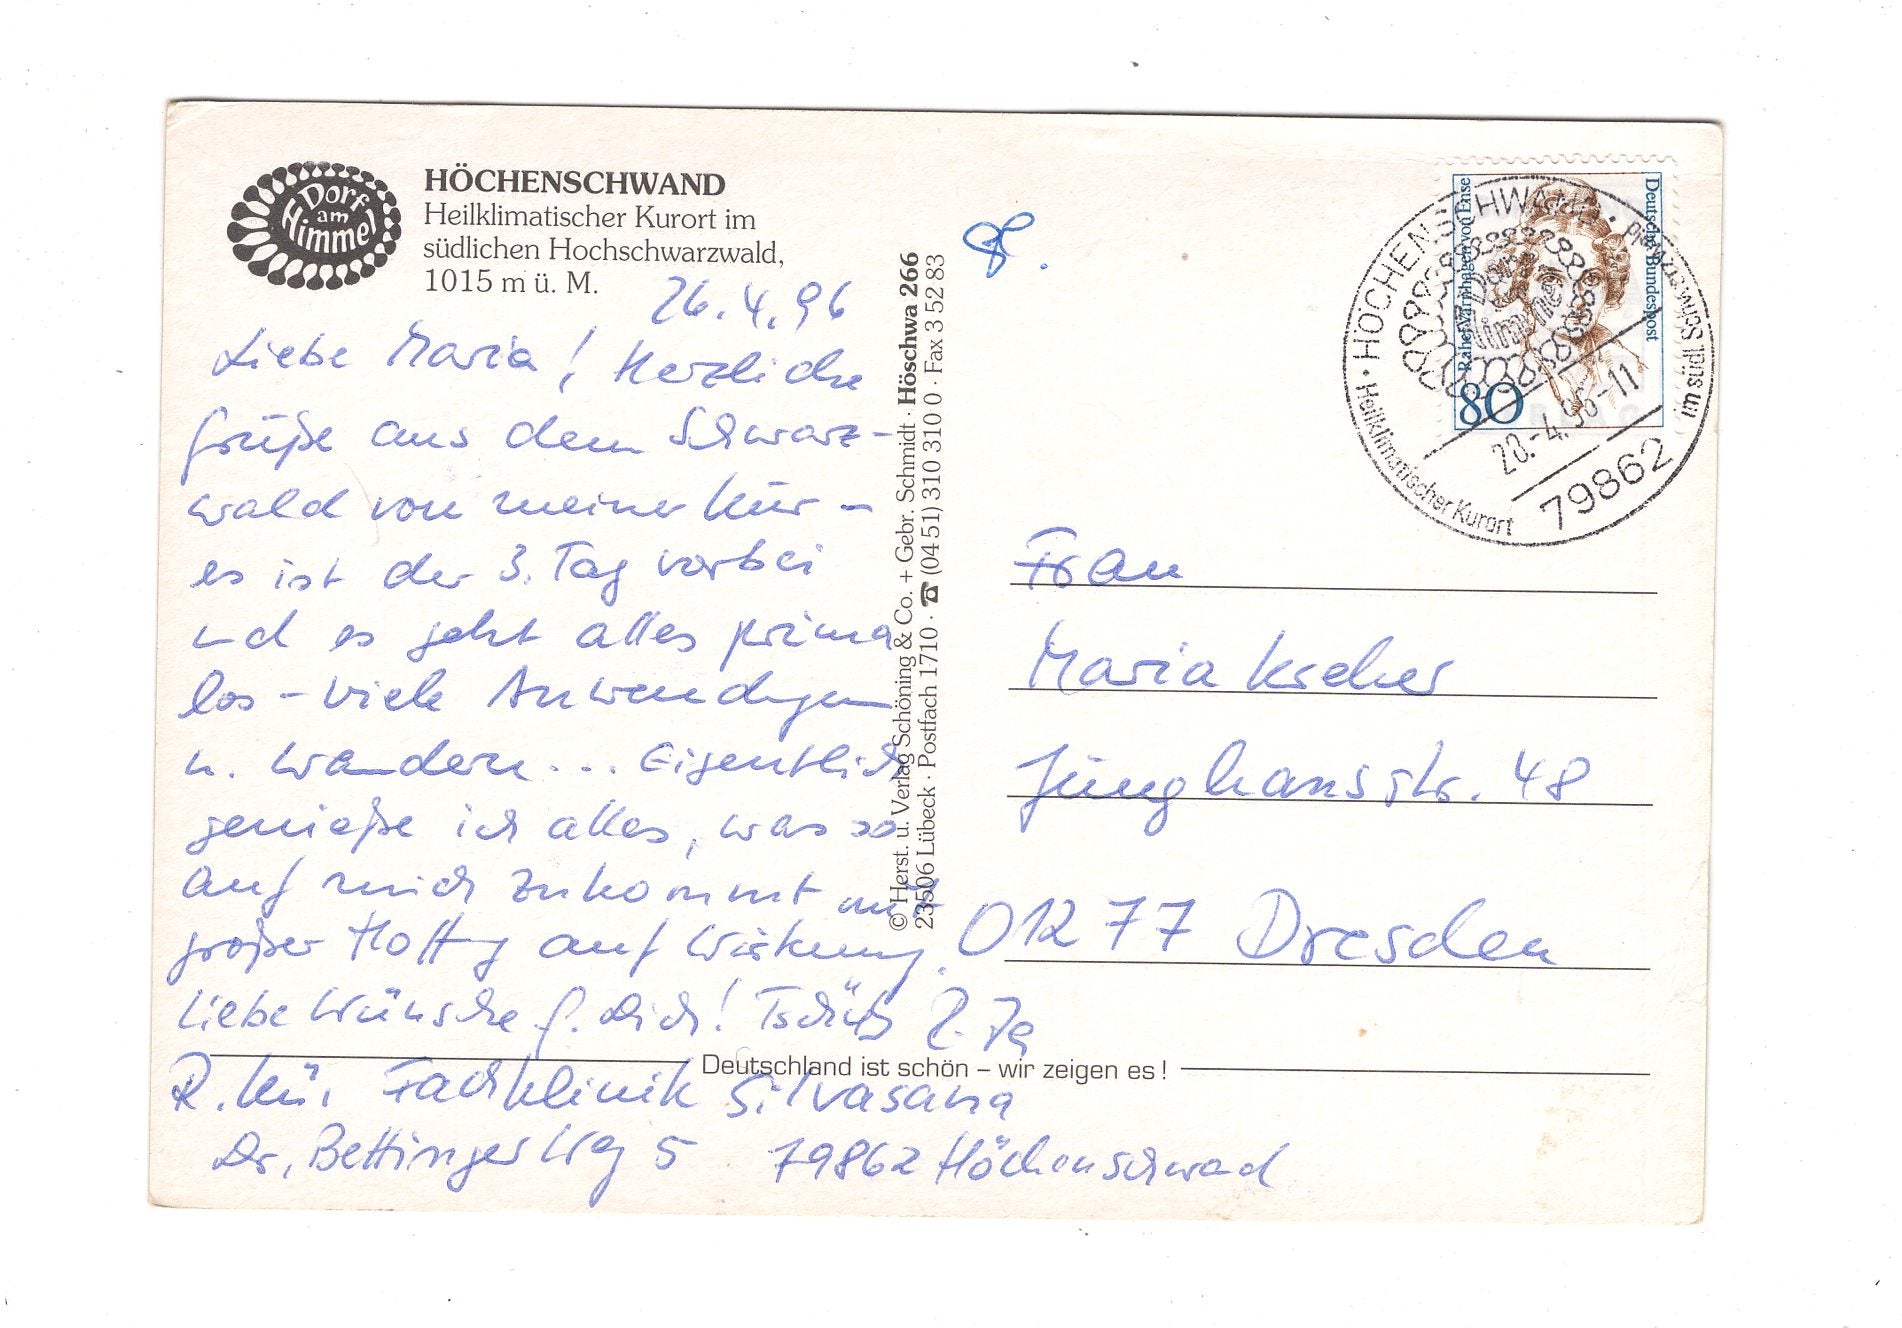 Dorf
am
Himmel
HÖCHENSCHWAND
Heilklimatischer Kurort im
südlichen Hochschwarzwald,
1015 m ü. M.
26.4.96
Liebe Maria! Herzliche
Grüße aus dem Schwarz-
wald von meiner Kur -
es ist der 3. Tag vorbei
und es geht alles prima
los - viele Anwendungen
u. wandern... Eigentlich
genieße ich alles, was so
auf mich zukommt mit
großer Hoffg auf Wirkung.
Liebe Wünsche f. Dich! Tschüß
Deutschland ist schön – wir zeigen es!
Fachklinik Silvasana
Dr. Bettinger Weg 5 79862 Höchenschwad
© Herst. u. Verlag Schöning & Co. + Gebr. Schmidt · Höschwa 266
23506 Lübeck · Postfach 1710 · ☎ (0451) 310 310 0 · Fax 3 52 83
Deutsche Bundespost
Rahel Varnhagen von Ense
80
HÖCHENSCHWAND
im südl. Schwarzwald
Heilklimatischer Kurort
Dorf
am
Himmel
-4.96-11
79862
Frau
Maria Kreher
Junghansstr. 48
01277 Dresden